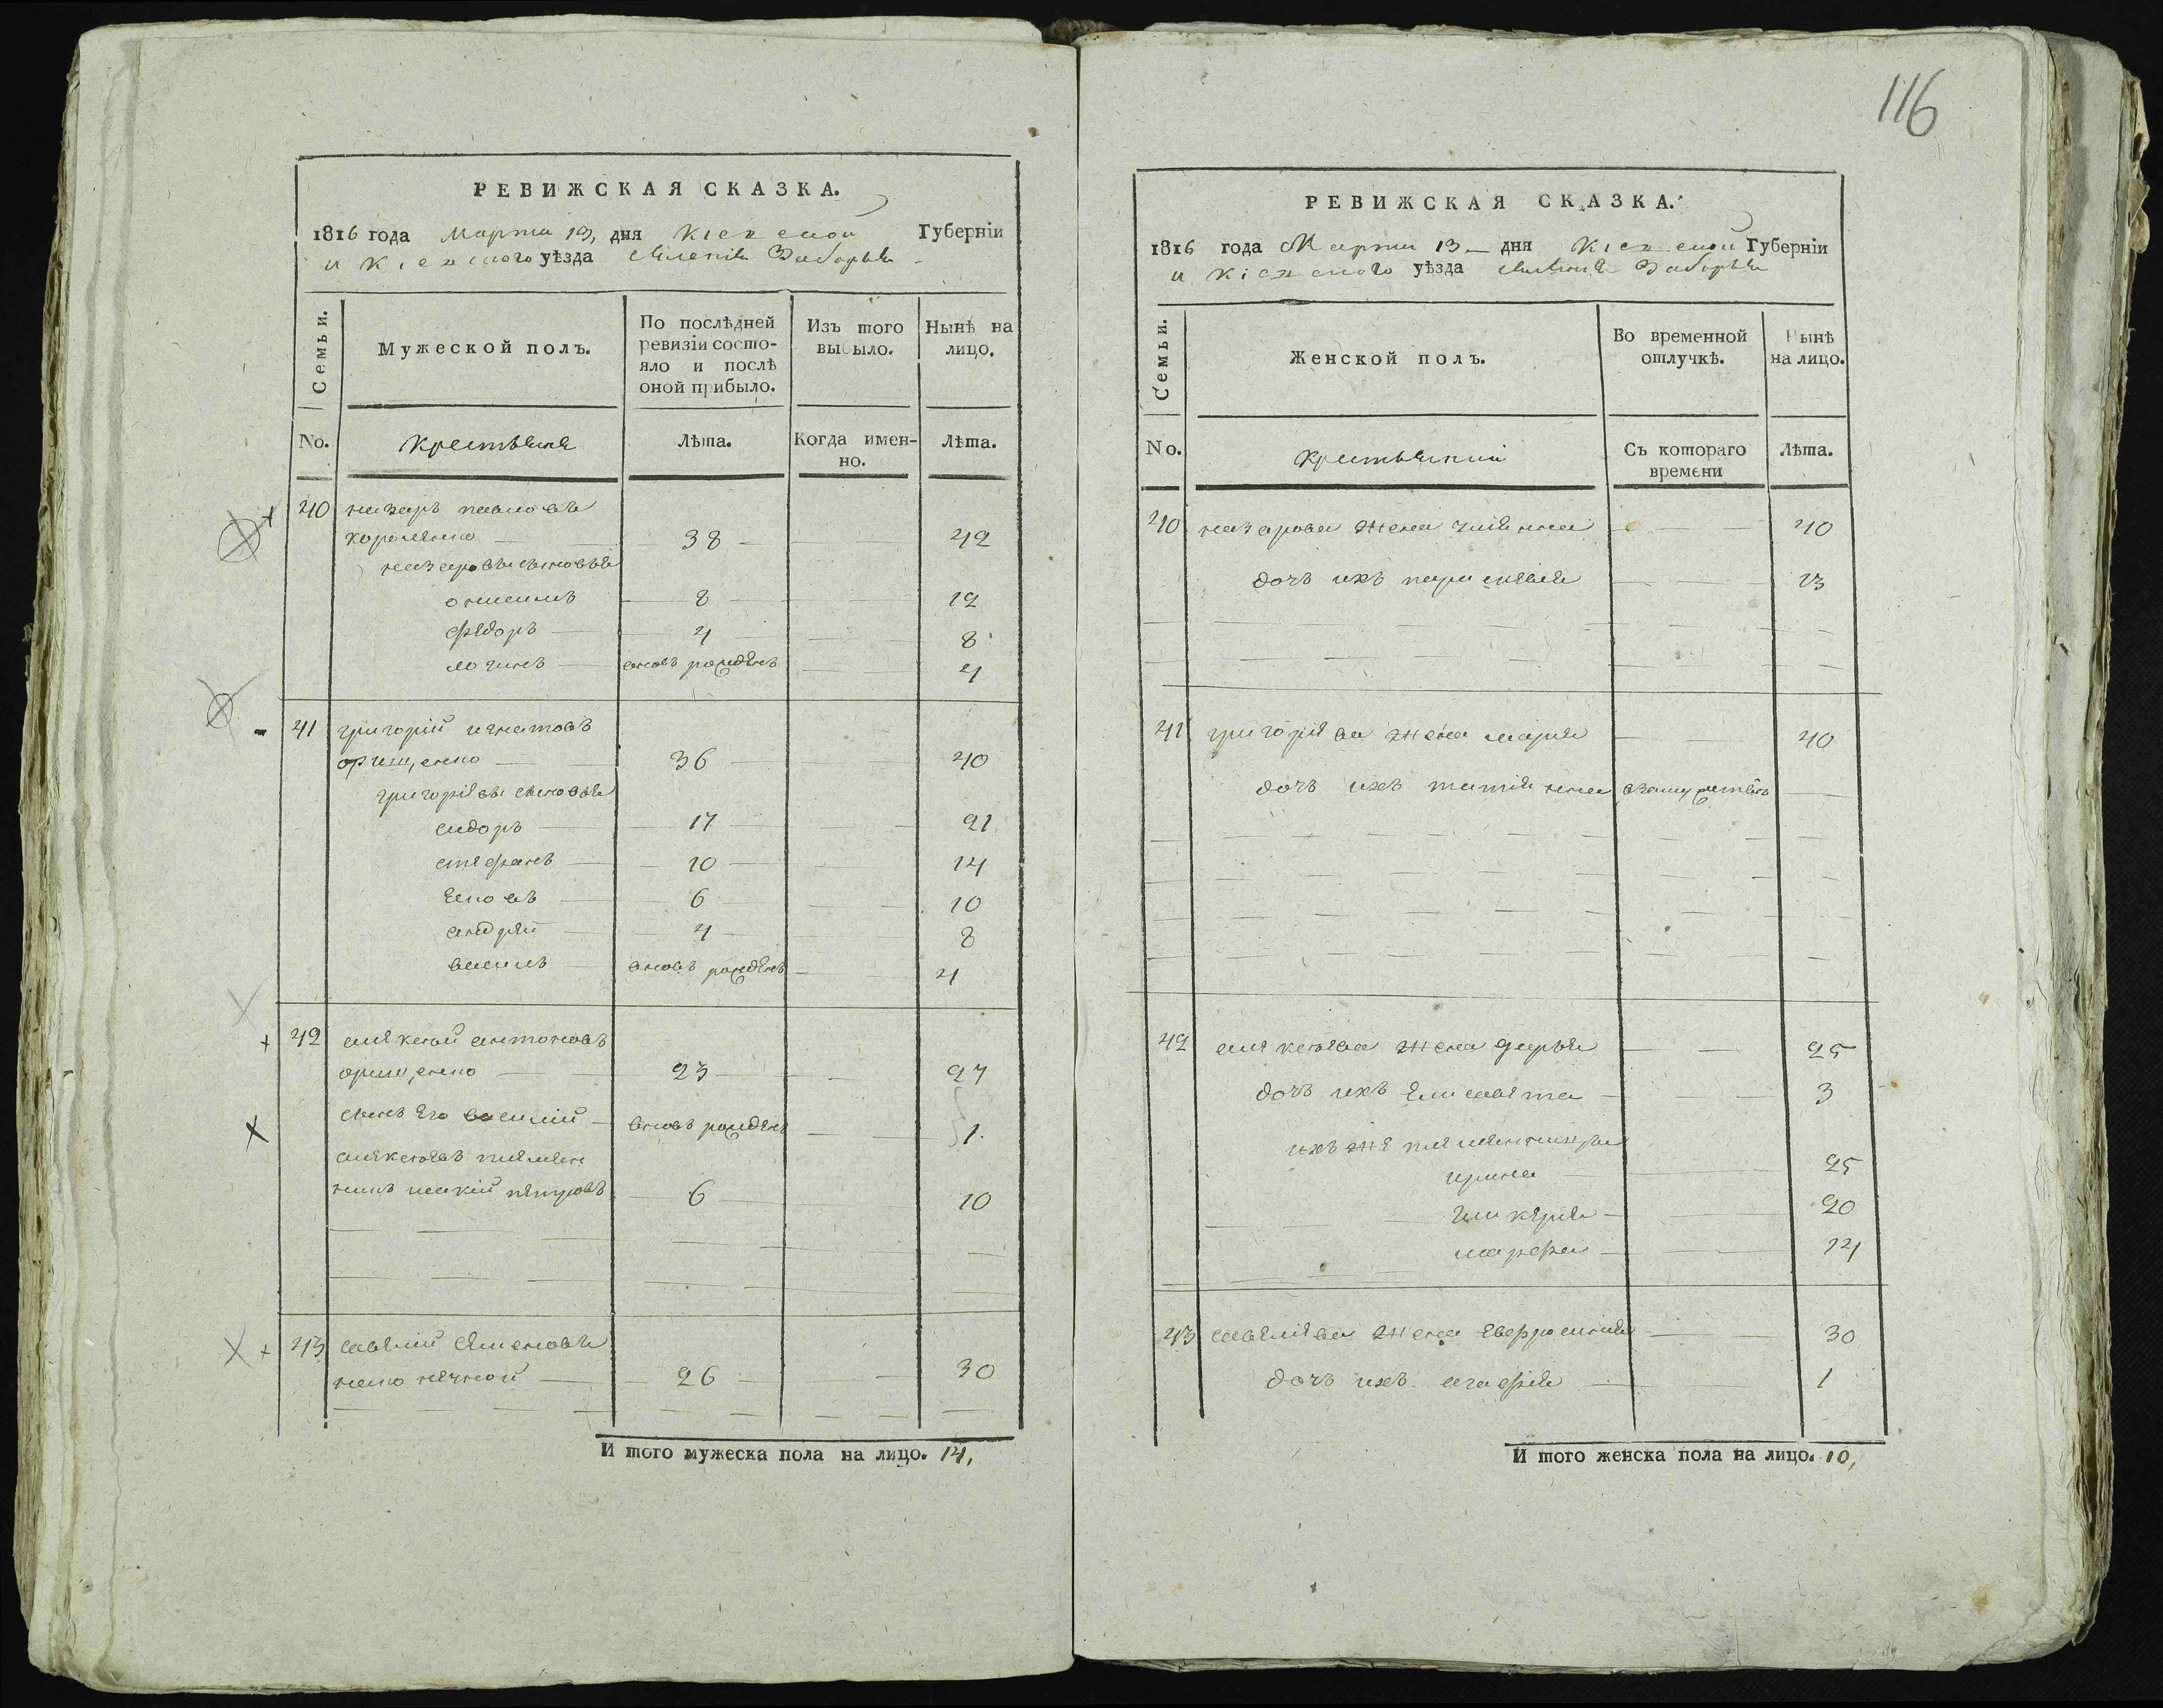 116
РЕВИЖСКАЯ СКАЗКА.
1816 года Марта 13, дня Кіевской Губерніи
и Кіевского уѣзда селенія Заборья
Семьи.
Мужеской полъ.
По послѣдней ревизіи состо-
яло и послѣ
оной прибыло.
Изъ того
выбыло.
Нынѣ на
лицо.
No.
Крестьяне
Лѣта.
Когда имен-
но.
Лѣта.
40 назаръ павловъ
38 42
назаровы сыновья
8 12
федоръ 4 8
логинъ вновь рожденъ 4
41 григорій игнатовъ
орищенко 36 40
григоріевы сыновья
сидоръ 17 21
стефанъ 10 14
яковъ 6 10
андрей 4 8
василь вновь рожденъ 4
42 алексей антоновъ
орищенко 23 27
сынъ его василий вновь рожденъ 1.
алексеевъ племян
никъ петровъ 6 10
43 савелий семеновъ
26 30
И того мужеска пола на лицо. 14,
РЕВИЖСКАЯ СКАЗКА.
1816 года Марта 13 дня Кіевской Губерніи
и Кіевского уѣзда селенія Заборья
Семьи.
Женской полъ.
Во временной
отлучкѣ.
Нынѣ
на лицо.
No.
Крестьянки
Съ котораго
времени
Лѣта.
40 назарова жена 40
дочь ихъ 13
41 григоріева жена марія 40
дочь ихъ татіянна взамужестве
42 алексеева жена дарья 25
дочь ихъ елисавета 3
ихъ же племянницы
ирина 25
гликерія 20
марфа 14
43 савеліева жена евфросинія 30
дочь ихъ агафія 1
И того женска пола на лицо. 10,